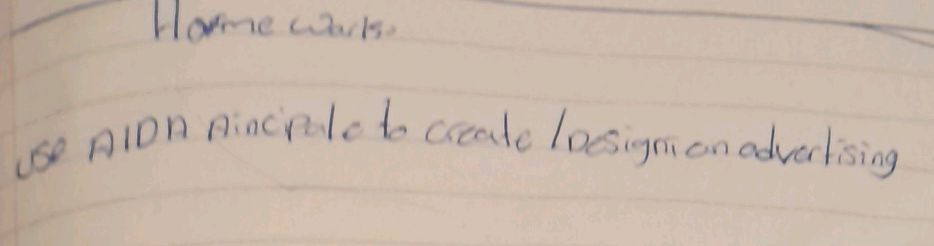 Home Work.
use AIDA Principale to create / Design an advertising